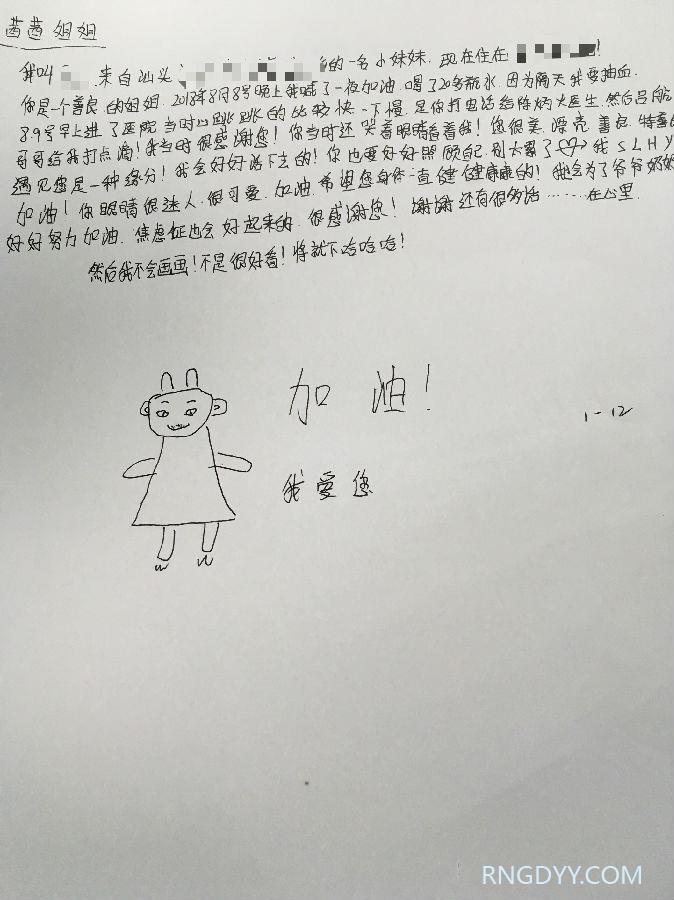 茜茜姐姐
我叫 来自汕头 的一名小妹妹.现在住在 !
你是一个善良的姐姐.2018年8月8号晚上我喊了一夜加油.喝了20多瓶水.因为隔天我要抽血.
8.9号早上进了医院当时心跳跳的比较快一下慢.是你打电话给陈炳大医生.然后吕航
哥哥给我打点滴!我当时很感谢您!你当时还哭着眼睛看着我!您很美.漂亮 善良.特喜
遇见您是一种缘分!我会好好活下去的!你也要好好照顾自己.别太累了 我SLHY
加油!你眼睛很迷人.很可爱.加油.希望您身体一直健健康康的!我会为了爷爷奶奶
好好努力加油.焦虑症也会好起来的.很感谢您!谢谢还有很多话………在心里.
然后我不会画画!不是很好看!将就下哈哈哈!
加 油!
1-12
我爱您
RNGDYY.COM